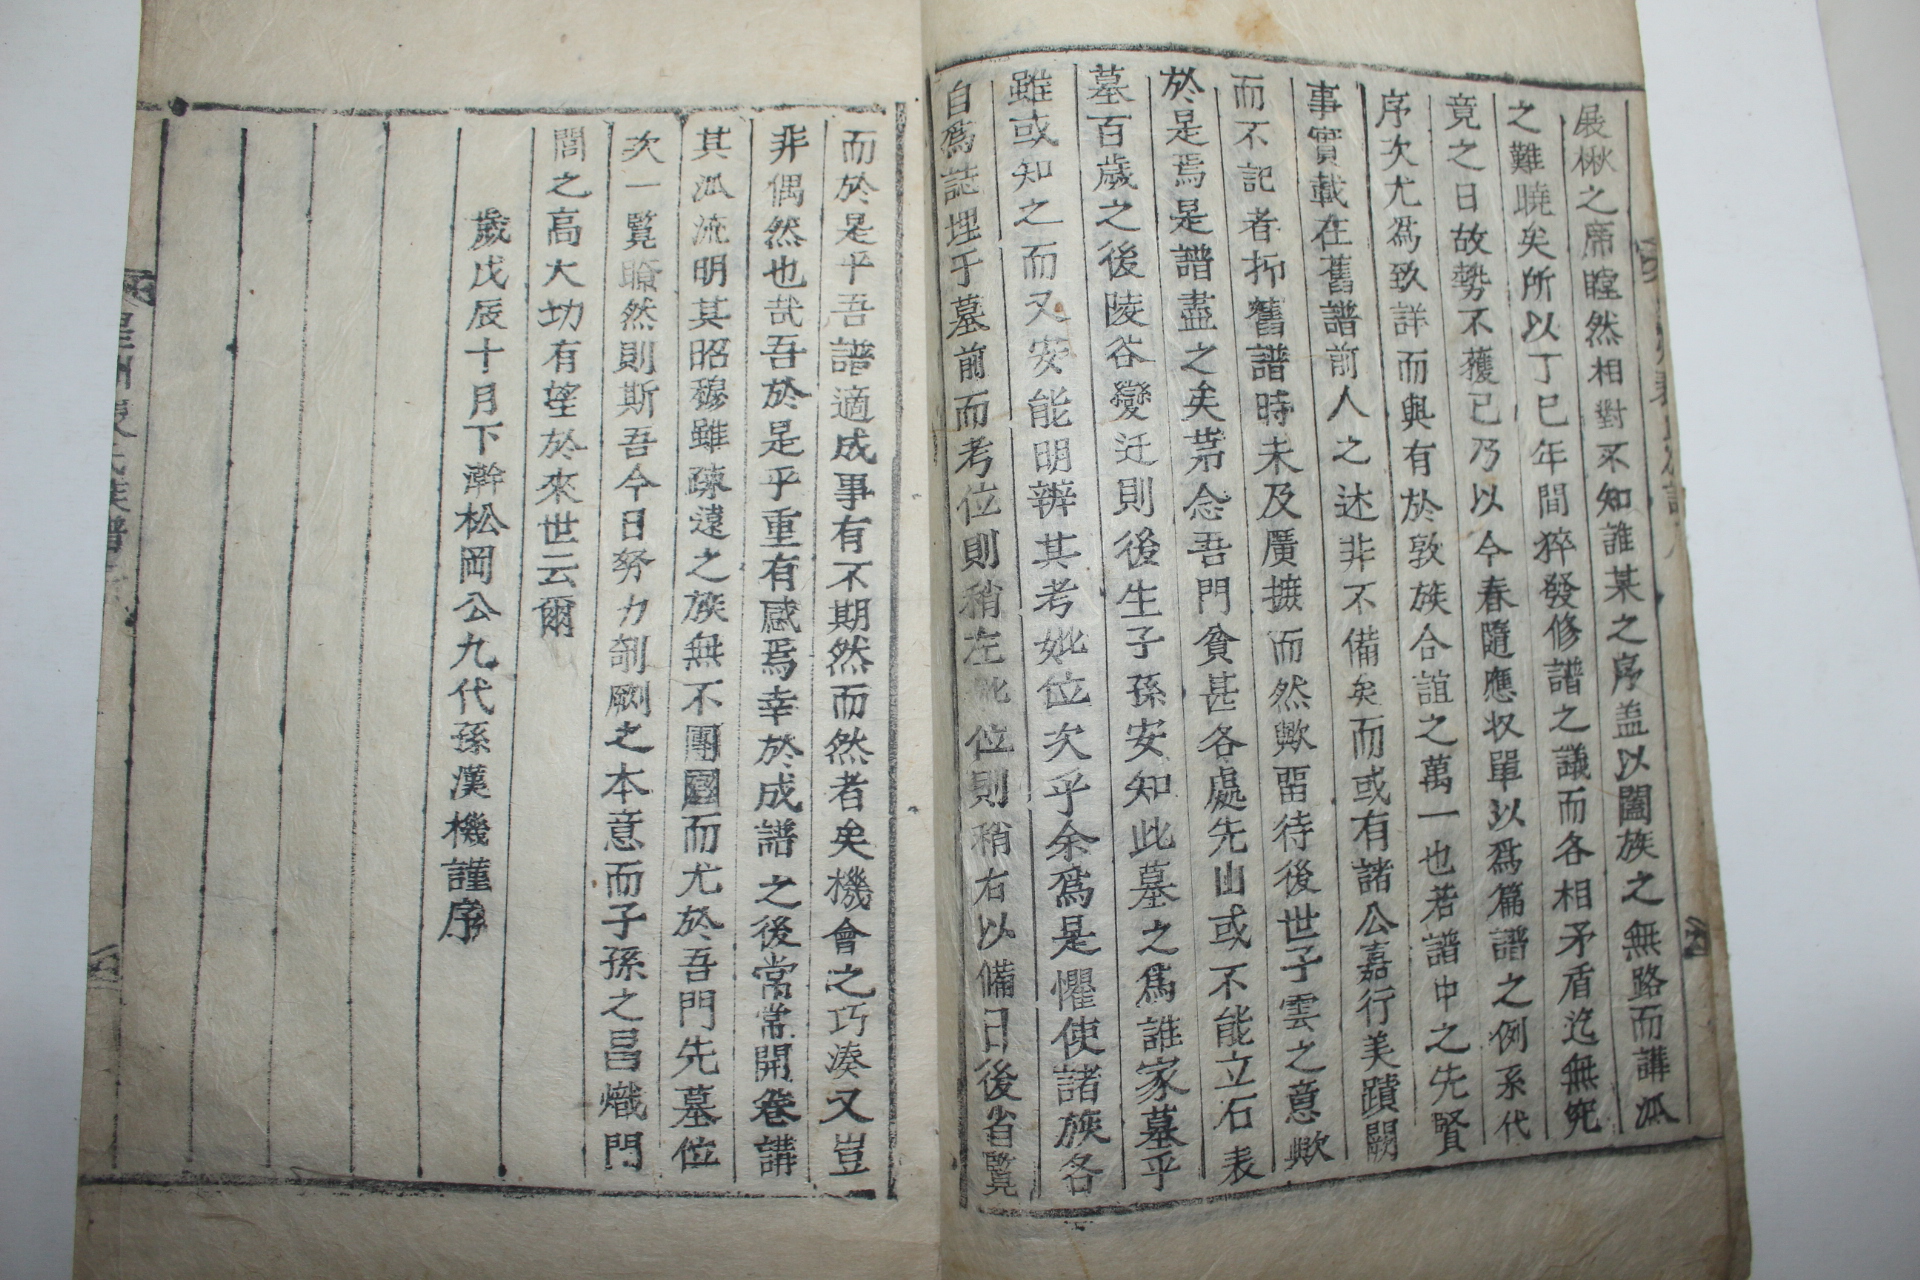 展楸之席瞠然相對不知誰某之序盖以闔族之無路而講派
之難曉矣所以丁巳年間猝發修譜之議而各相矛盾迄無究
竟之日故勢不獲已乃以今春隨應収單以爲篇譜之例系代
序次尤爲致詳而與有於敦族合誼之萬一也若譜中之先賢
事實載在舊譜前人之述非不備矣而或有諸公嘉行美蹟闕
而不記者抑舊譜時未及廣摭而然歟留待後世子雲之意歟
於是焉是譜盡之矣苐念吾門貧甚各處先山或不能立石表
墓百歲之後陵谷變迁則後生子孫安知此墓之爲誰家墓乎
雖或知之而又安能明辨其考妣位次乎余爲是懼使諸族各
自爲誌埋于墓前而考位則稍左妣位則稍右以備日後省覽
而於是乎吾譜適成事有不期然而然者矣機會之巧湊又豈
非偶然也哉吾於是乎重有感焉幸於成譜之後常常開卷講
其派流明其昭穆雖疎遠之族無不團圓而尤於吾門先墓位
次一覧瞭然則斯吾今日努力剞劂之本意而子孫之昌熾門
閭之高大功有望於來世云爾
歲戊辰十月下澣松岡公九代孫漢機謹序
氏族譜